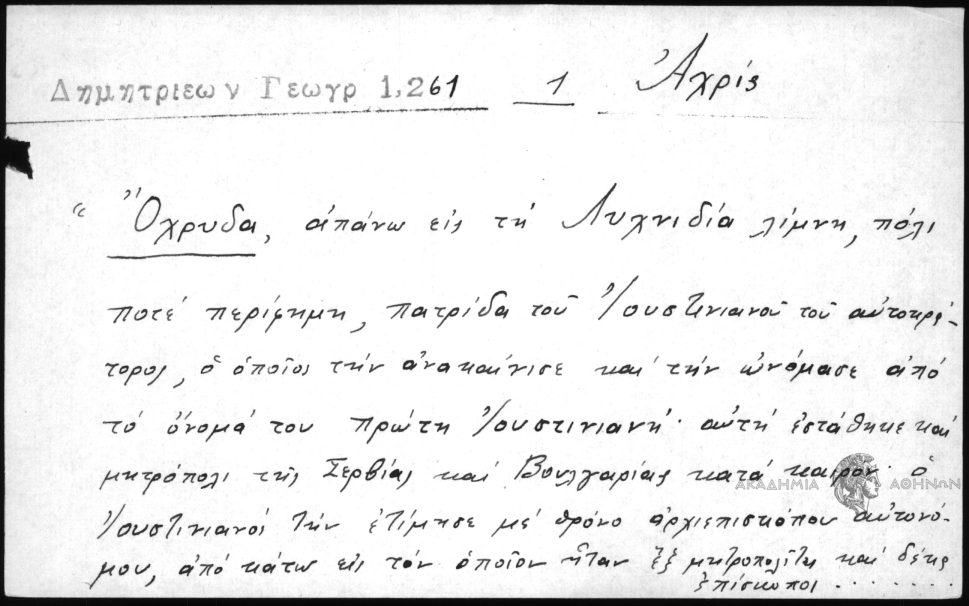 Δημητριεων Γεωγρ 1,261 1 Ἀχρίς
“ Ὄχρυδα, ἀπάνω εἰς τὴ Λυχνιδία λίμνη, πόλι
ποτέ περίφημη, πατρίδα τοῦ Ἰουστινιανοῦ τοῦ αὐτοκρά-
τορος, ὁ ὁποῖος τήν ἀνακαίνισε καί τήν ὠνόμασε ἀπό
τό ὄνομά του πρώτη Ἰουστινιανή· αὐτή ἐστάθηκε καί
μητρόπολι τῆς Σερβίας καί Βουλγαρίας κατά καιρόν· ὁ
Ἰουστινιανός τήν ἐτίμησε μέ θρόνο ἀρχιεπισκόπου αὐτονό-
μου, ἀπό κάτω εἰς τόν ὁποῖον ἦταν ἕξ μητροπολῖται καί δέκα
ἐπίσκοποι . . . . . . . .
ΑΚΑΔΗΜΙΑ ΑΘΗΝΩΝ